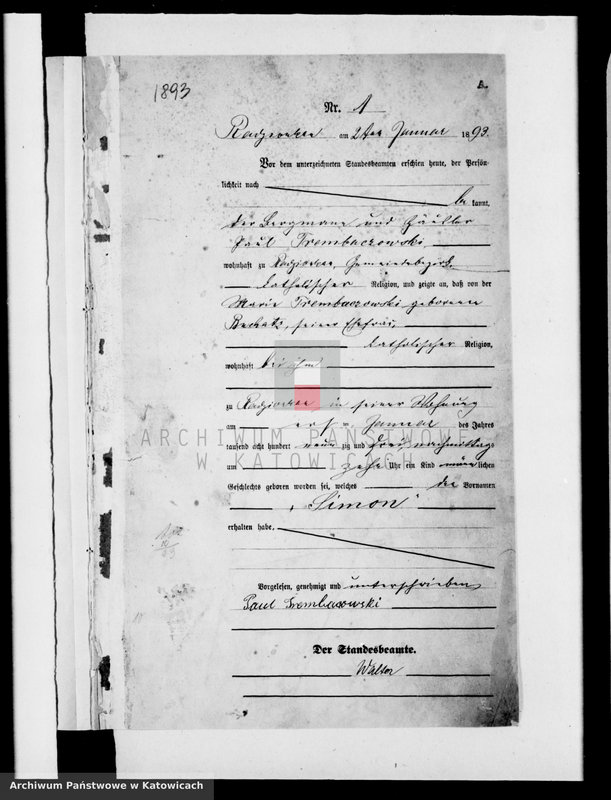 1893
A.
Nr. 1
Radzionkau am 2ten Januar 1893
Vor dem unterzeichneten Standesbeamten erschien heute, der Persön-
lichkeit nach
be kannt,
der Bergmann und Häusler
Paul Trembaczowski
wohnhaft zu Radzionkau, Gemeindebezirk
katholischer Religion, und zeigte an, daß von der
Marie Trembaczowski geborenen
seiner Ehefrau,
katholischer Religion,
wohnhaft bei ihm
zu Radzionkau in seiner Wohnung
am ersten Januar des Jahres
tausend acht hundert neun zig und drei nachmittags
um zehn Uhr ein Kind männ liches
Geschlechts geboren worden sei, welches den Vornamen
„Simon“
erhalten habe,
Vorgelesen, genehmigt und unterschrieben
Paul Trembaczowski
Der Standesbeamte.
Walter
ARCHIWUM PAŃSTWOWE
W KATOWICACH
Archiwum Państwowe w Katowicach